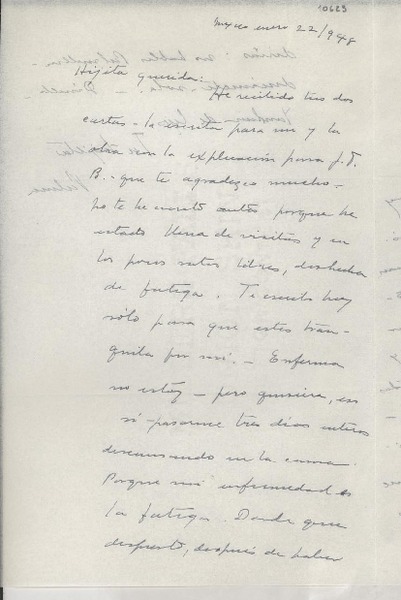 10623
Mexico enero 22/948
Hijita querida:
He recibido tus dos
cartas - la escrita para mi y la
otra con la explicación para J. T.
B.- que te agradezco mucho.-
No te he escrito antes porque he
estado llena de visitas y en
los pocos ratos libres, deshecha
de fatiga. Te escribo hoy
sólo para que estes tran-
quila por mi. - Enferma
no estoy - pero quisiera, eso
si pasarme tres dias enteros
descansando en la cama.
Porque mi enfermedad es
la fatiga. Desde que
desperté, después de haber